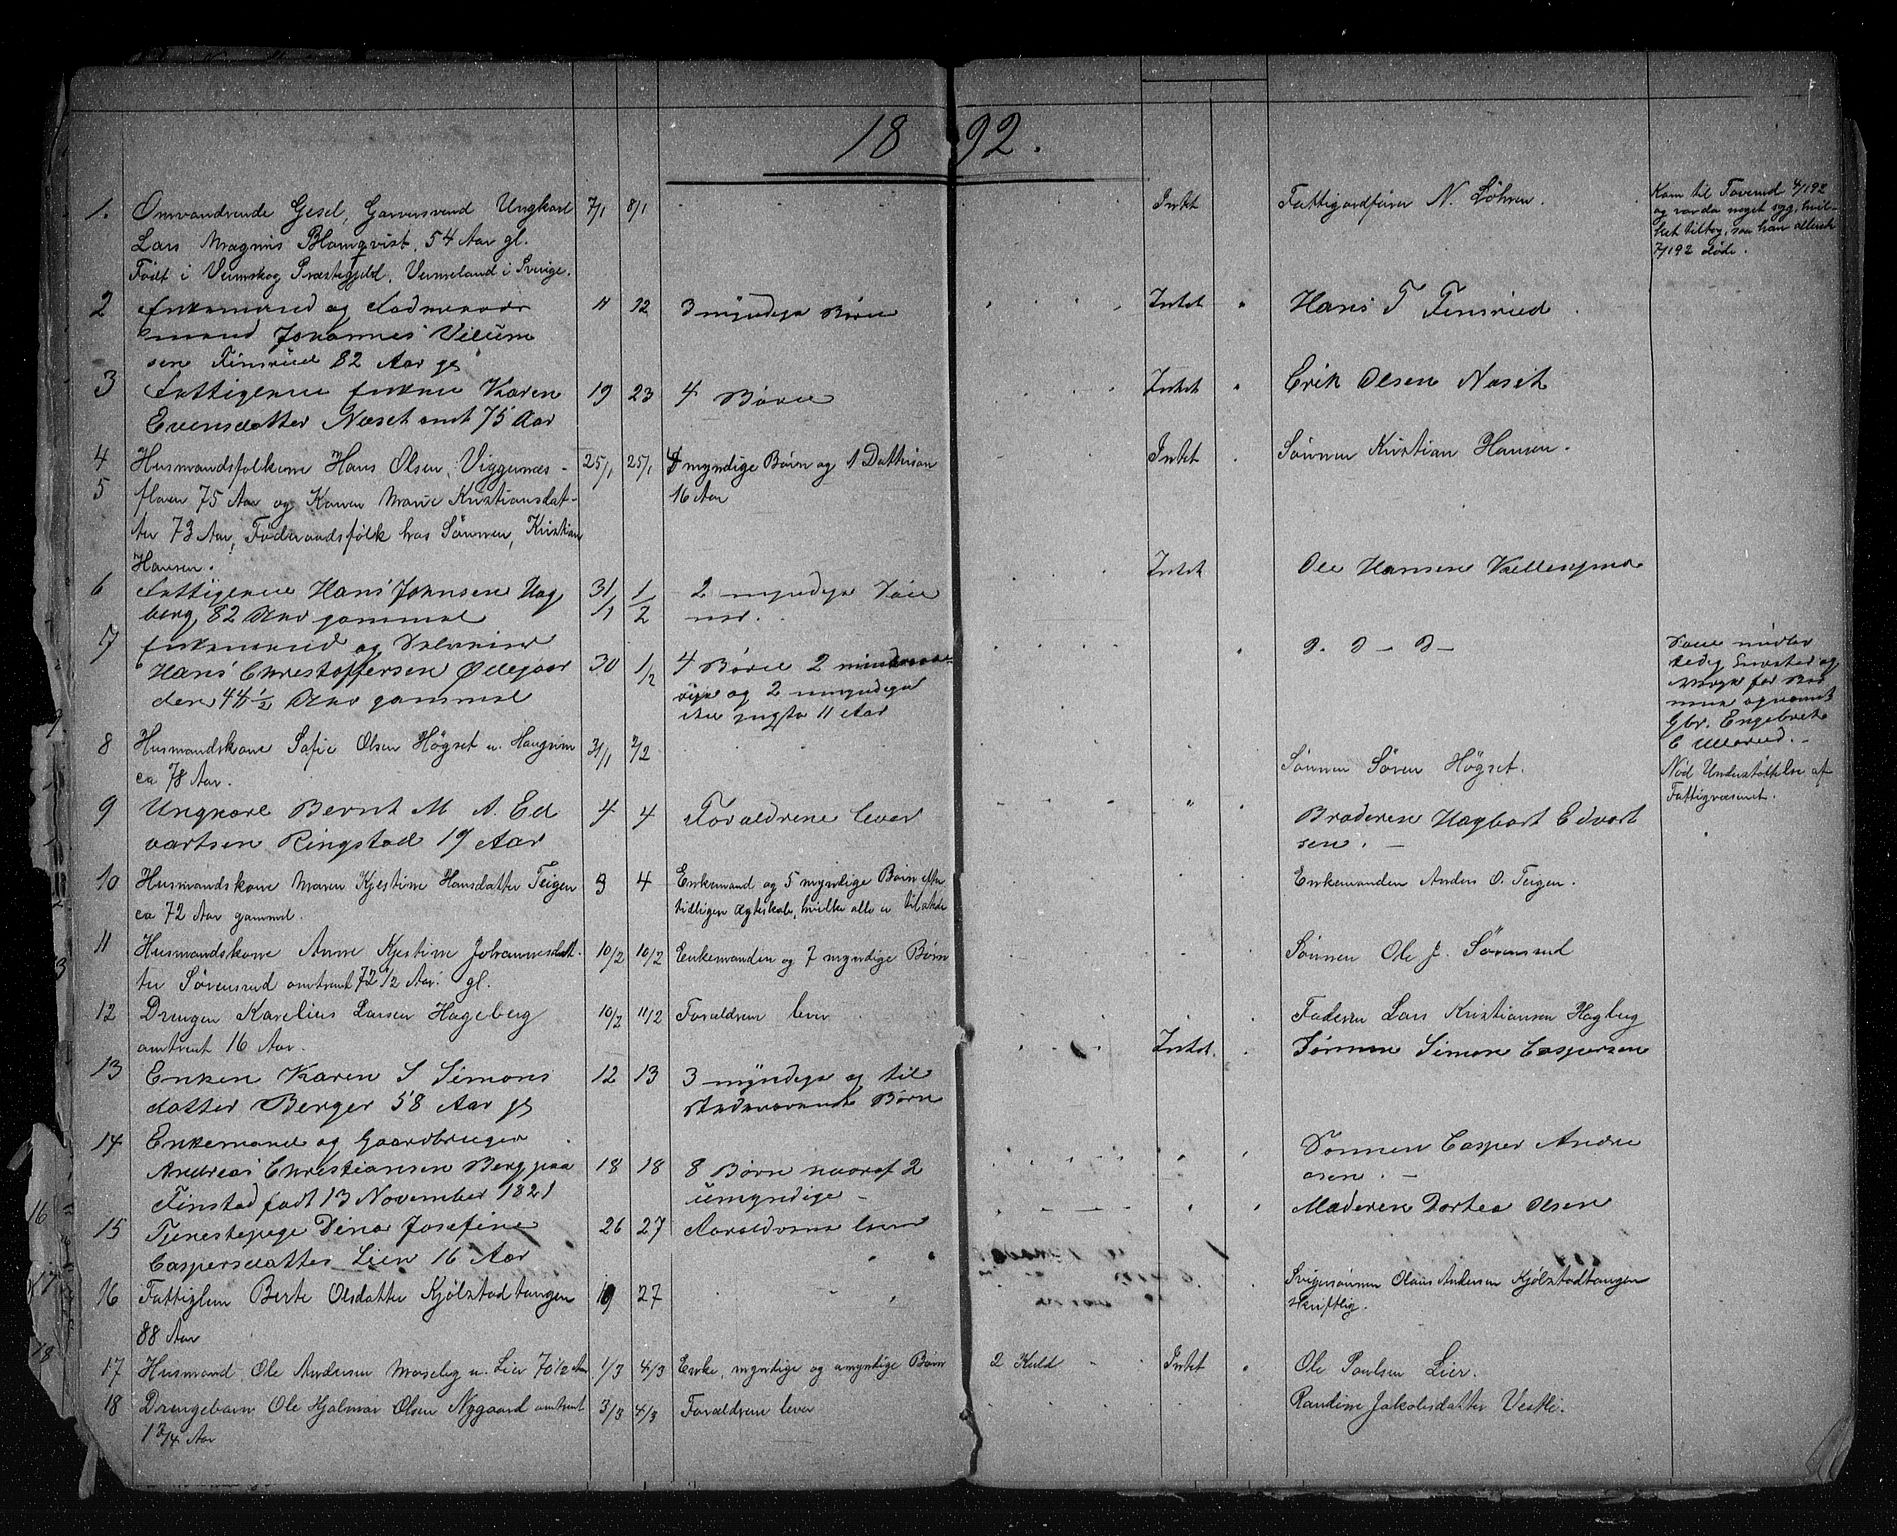 18 92.
1. Omvandrende Gesel, Garversvend Ungkarl 7/1 8/1 Intet Fattigardfører N. Løhren.
Lars Magnus Blomqvist, 54 Aar gl.
Født i Præstegjeld, Vermeland i Sverige.
Kom til 4/1 92
og var da noget syg, hvil-
ket tiltog, saa han allerede
7/1 92 døde.
2 Enkemand og Føderaads 11 12 3 myndige Børn Intet Hans T Finsrud
mand Johannes
sen Finsrud 82 Aar gl
3 Fattigenke Karen 19 23 4 Børn Intet Erik Olsen Næset
Evensdatter Næset omt 75 Aar
4 Husmandsfolkene Hans Olsen Viggernæs- 25/1 25/1 4 myndige Børn og 1 Dattersøn Intet Sønnen Kristian Hansen.
5 floen 75 Aar og Karen Marie Kristiansdat- 16 Aar
ter 73 Aar, Føderaadsfolk hos Sønnen, Kristian
Hansen.
6 Hans Johnsen Hag 31/1 1/2 2 myndige Intet Ole Hansen
berg 82 Aar gammel
7 Enkemand og
Hans Christoffersen Ødegaar 30 1/2 4 Børn 2 mindreaa-
den 44 1/2 Aar gammel rige og 2 umyndige
den yngste 11 Aar
Som midler
tidig og
Værge for Bør
nene opnævnt
Gbr. Engebret
E Ullerud.
8 Husmandskone Sofie Olsen Høgset u. Haugrim 31/1 2/2 Sønnen Søren Høgset. Nød Understøttelse af
ca 78 Aar. Fattigvæsenet.
9 Ungkarl Bernt M A. Ed 4 4 Forældrene lever Broderen Hagbart Edvart
vartsen Ringstad 19 Aar sen.
10 Husmandskone Maren Kjestine Hansdatter Teigen 3 4 Enkemand og 5 myndige Børn efter Enkemanden Anders O. Teigen.
ca 72 Aar gammel. tidligere Ægteskab, hvilke alle er tilstede
11 Husmandskone Anne Kjestine Johannesdat- 10/2 10/2 Enkemanden og 7 myndige Børn Sønnen Ole J. Sørensrud
ter Sørensrud omtrent 72 1/2 Aar gl.
12 Drengen Karelius Larsen Hageberg 10/2 11/2 Forældrene lever Faderen Lars Kristiansen Hagberg
omtrent 16 Aar.
13 Enken Karen S Simons 12 13 3 myndige og til Intet Sønnen Simon Caspersen
datter Berger 58 Aar gl stedeværende Børn
14 Enkemand og Gaardbruger
Andreas Christiansen Berg paa 18 18 8 Børn hvoraf 2 Sønnen Casper Andre
Finstad født 13 November 1821 umyndige asen.
15 Tjenestepige Dina Josefine 26 27 Forældrene lever Moderen Dortea Olsen
Caspersdatter Lien 16 Aar
16 Fattiglem Berte Olsdatter Kjølstadtangen 19 27 Svigersønnen Olaus Andersen Kjølstadtangen
88 Aar skriftlig.
17 Husmand Ole Andersen Moselig u. Lier 70 1/2 Aar 1/3 4/3 Enke, myndige og umyndige Børn 2 Kuld Intet Ole Paulsen Lier.
18 Drengebarn Ole Hjalmar Olsen Nygaard omtrent 3/3 4/3 Forældrene lever Randine Jakobsdatter Vestli.
1 3/4 Aar
16
17
18